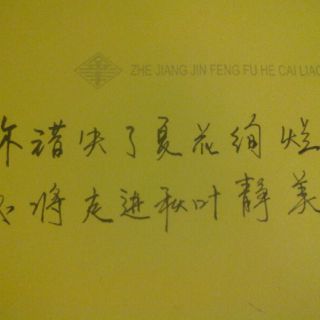 ZHE JIANG JIN FENG FU HE CAI LIAO
你错失了夏花绚烂
必将走进秋叶静美